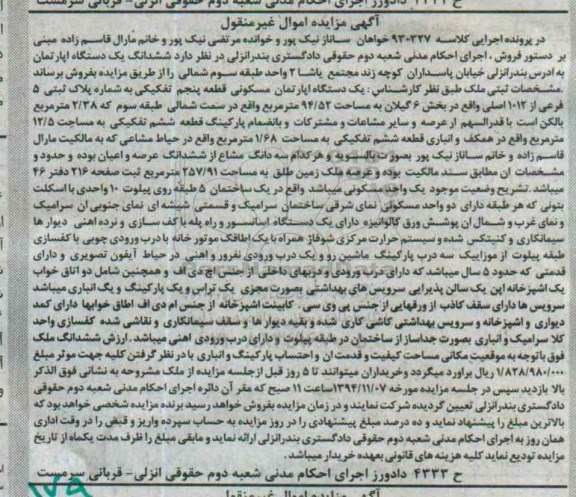 ح ۴۳۳۴ دادورز اجرای احکام مدنی شعبه دوم حقوقی انزلی- قربانی سرمست
آگهی مزایده اموال غیرمنقول
در پرونده اجرایی کلاسه ۹۳۰۳۲۷ خواهان ساناز نیک پور و خوانده مرتضی نیک پور و خانم مارال قاسم زاده مبنی
بر دستور فروش ، اجرای احکام مدنی شعبه دوم حقوقی دادگستری بندرانزلی در نظر دارد ششدانگ یک دستگاه آپارتمان
به آدرس بندرانزلی خیابان پاسداران کوچه زند مجتمع یاشا ۲ واحد طبقه سوم شمالی را از طریق مزایده بفروش برساند
مشخصات ثبتی ملک طبق نظر کارشناس : یک دستگاه آپارتمان مسکونی قطعه پنجم تفکیکی به شماره پلاک ثبتی ۵
فرعی از ۱۰۱۲ اصلی واقع در بخش ۶ گیلان به مساحت ۹۴/۵۲ مترمربع واقع در سمت شمالی طبقه سوم که ۲/۳۸ مترمربع
بالکن است با قدرالسهم از عرصه و سایر مشاعات و مشترکات و بانضمام پارکینگ قطعه ششم تفکیکی به مساحت ۱۲/۵
مترمربع واقع در همکف و انباری قطعه ششم تفکیکی به مساحت ۱/۶۸ مترمربع واقع در حیاط مشاعی که به مالکیت مارال
قاسم زاده و خانم ساناز نیک پور بصورت بالسویه و هرکدام سه دانگ مشاع از ششدانگ عرصه و اعیان بوده و حدود و
مشخصات آن مطابق سند مالکیت بوده و عرصه ملک زمین طلق به مساحت ۲۵۷/۹۱ مترمربع ثبت صفحه ۲۱۶ دفتر ۴۶
میباشد .تشریح وضعیت موجود یک واحد مسکونی میباشد واقع در یک ساختمان ۵ طبقه روی پیلوت ۱۰ واحدی با اسکلت
بتونی که هر طبقه دارای دو واحد مسکونی نمای شرقی ساختمان سرامیک و قسمتی شیشه ای نمای جنوبی آن سرامیک
و نمای غرب و شمال آن پوشش ورق گالوانیزه دارای یک دستگاه آسانسور و راه پله با کف سازی و نرده آهنی دیوار ها
سیمانکاری و کنیتکس شده و سیستم حرارت مرکزی شوفاژ همراه با یک اطاقک موتور خانه با درب ورودی چوبی با کفسازی
طبقه پیلوت از موزاییک سه درب پارکینگ ماشین رو و یک درب ورودی نفررو و آهنی در حیاط آیفون تصویری و دارای
قدمتی که حدود ۵ سال میباشد که دارای درب ورودی و دربهای داخلی از جنس اچ دی اف و همچنین شامل دو اتاق خواب
یک آشپزخانه اپن یک سالن پذیرایی سرویس های بهداشتی بصورت مجزی یک تراس و یک پارکینگ و یک انباری میباشد
سرویس ها دارای سقف کاذب از ورقهایی از جنس پی وی سی . کابینت آشپزخانه از جنس ام دی اف اطاق خوابها دارای کمد
دیواری و آشپزخانه و سرویس بهداشتی کاشی کاری شده و بقیه دیوار ها و سقف سیمانکاری و نقاشی شده کفسازی واحد
کلا سرامیک و انباری بصورت جداساز از ساختمان در طبقه پیلوت و دارای درب ورودی آهنی میباشد . ارزش ششدانگ ملک
فوق باتوجه به موقعیت مکانی مساحت کیفیت و قدمت آن و احتساب پارکینگ و انباری با در نظر گرفتن کلیه جهت موثر مبلغ
۱/۸۲۸/۹۸۰/۰۰۰ ریال برآورد میگردد وخریداران میتوانند تا ۵ روز قبل از جلسه مزایده از ملک مشروحه به نشانی فوق الذکر
بالا بازدید سپس در جلسه مزایده مورخه ۱۳۹۴/۱۱/۰۷ ساعت ۱۱ صبح که مقر آن دائره اجرای احکام مدنی شعبه دوم حقوقی
دادگستری بندرانزلی تعیین گردیده شرکت نمایند و در زمان مزایده بفروش خواهد رسید برنده مزایده شخصی خواهد بود که
بالاترین مبلغ را پیشنهاد نماید و ده درصد مبلغ پیشنهادی را در روز مزایده به حساب سپرده واریز و قبض را در وقت اداری
همان روز به اجرای احکام مدنی شعبه دوم حقوقی دادگستری بندرانزلی ارائه نماید و مابقی مبلغ را ظرف مدت یکماه از تاریخ
مزایده تودیع نماید کلیه هزینه های قانونی بعهده خریدار میباشد.
ح ۴۳۳۳ دادورز اجرای احکام مدنی شعبه دوم حقوقی انزلی- قربانی سرمست
آگهی مزایده اموال غیرمنقول